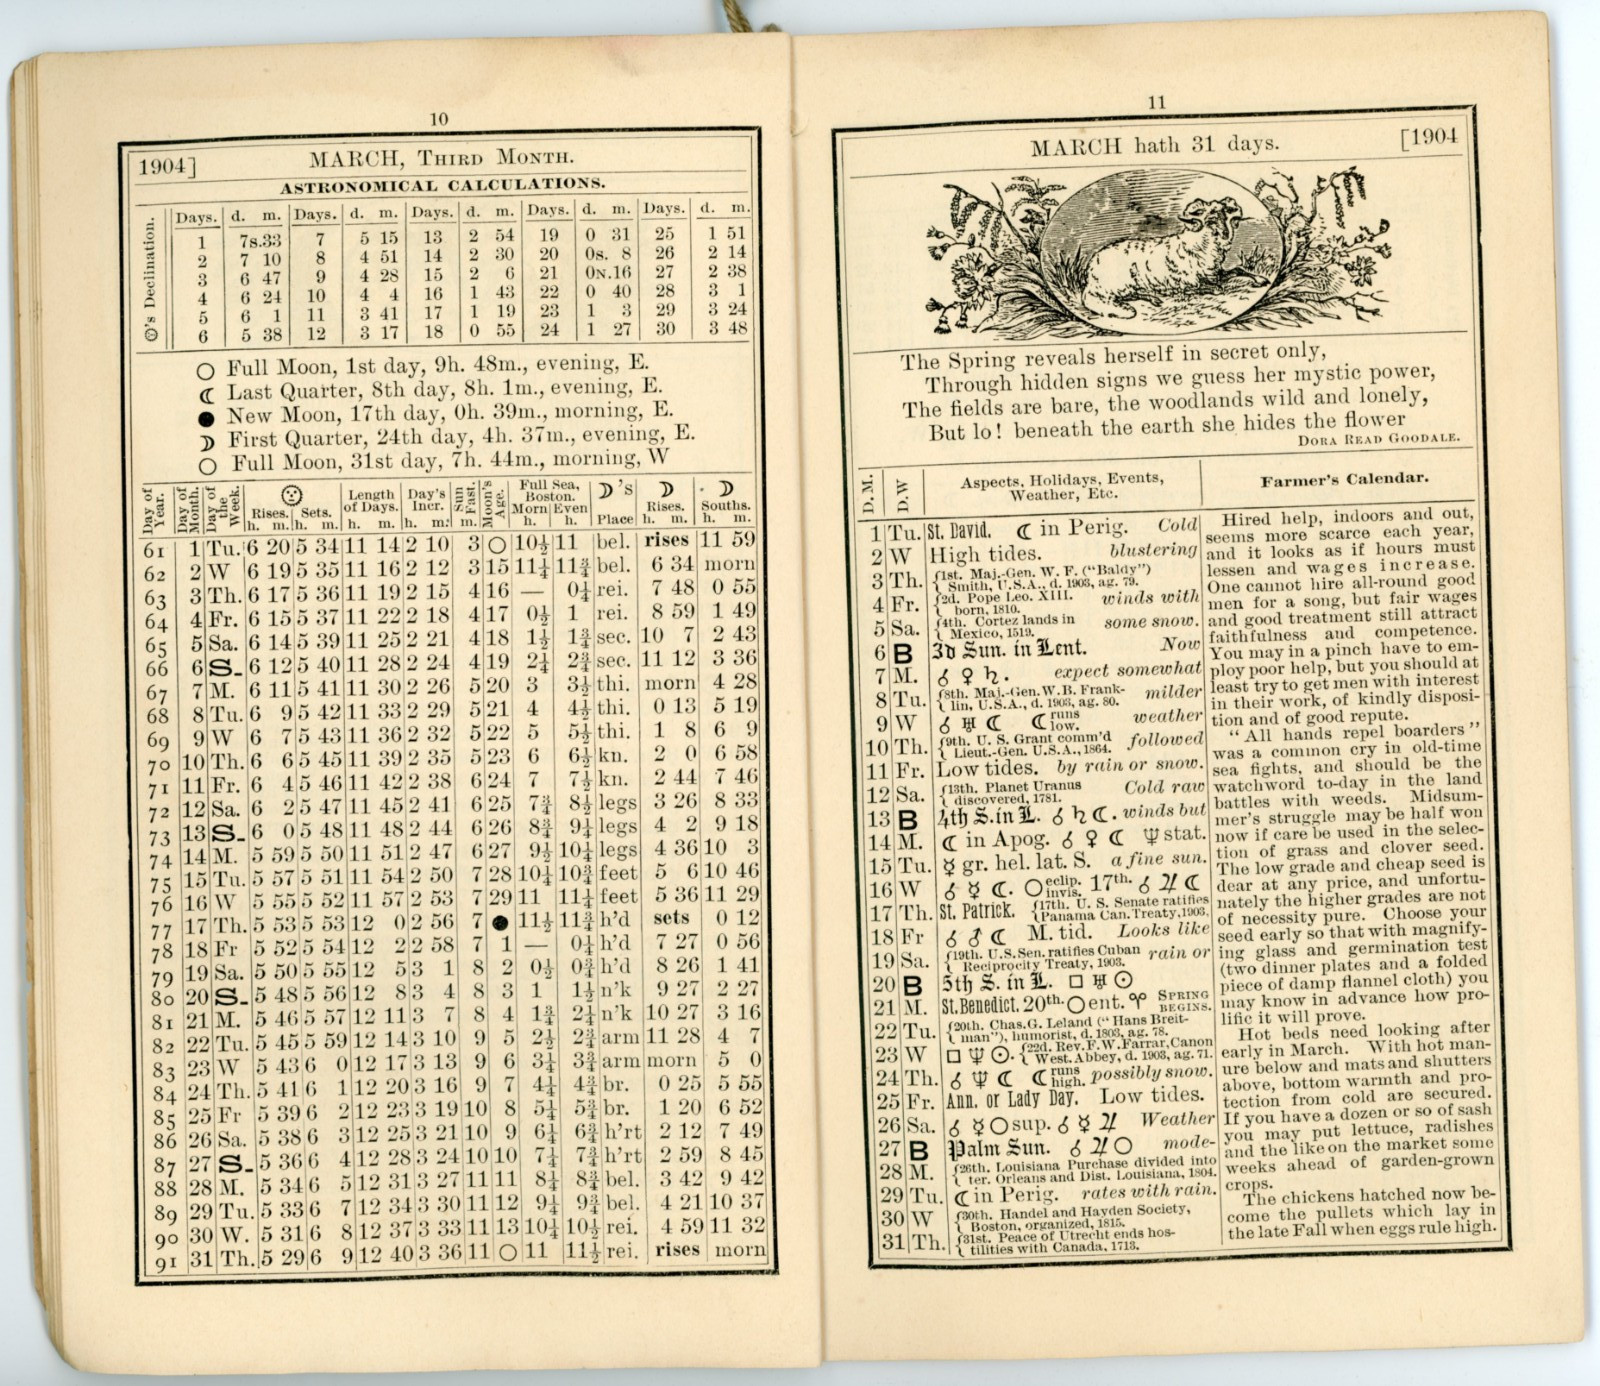 10
1904]
MARCH, THIRD MONTH.
ASTRONOMICAL CALCULATIONS.
☉'s Declination.
Days. d. m. Days. d. m. Days. d. m. Days. d. m. Days. d. m.
1 7s.33 7 5 15 13 2 54 19 0 31 25 1 51
2 7 10 8 4 51 14 2 30 20 0s. 8 26 2 14
3 6 47 9 4 28 15 2 6 21 0N.16 27 2 38
4 6 24 10 4 4 16 1 43 22 0 40 28 3 1
5 6 1 11 3 41 17 1 19 23 1 3 29 3 24
6 5 38 12 3 17 18 0 55 24 1 27 30 3 48
○ Full Moon, 1st day, 9h. 48m., evening, E.
☾ Last Quarter, 8th day, 8h. 1m., evening, E.
● New Moon, 17th day, 0h. 39m., morning, E.
☽ First Quarter, 24th day, 4h. 37m., evening, E.
○ Full Moon, 31st day, 7h. 44m., morning, W
Day of Year. Day of Month. Day of the Week. ☉ Rises. h. m. Sets. h. m. Length of Days. h. m. Day's Incr. h. m. Sun Fast. m. Moon's Age. Full Sea, Boston. Morn h. Even h. ☽'s Place ☽ Rises. h. m. ☽ Souths. h. m.
61 1 Tu. 6 20 5 34 11 14 2 10 3 ○ 10½ 11 bel. rises 11 59
62 2 W 6 19 5 35 11 16 2 12 3 15 11¼ 11¾ bel. 6 34 morn
63 3 Th. 6 17 5 36 11 19 2 15 4 16 — 0¼ rei. 7 48 0 55
64 4 Fr. 6 15 5 37 11 22 2 18 4 17 0½ 1 rei. 8 59 1 49
65 5 Sa. 6 14 5 39 11 25 2 21 4 18 1½ 1¾ sec. 10 7 2 43
66 6 S. 6 12 5 40 11 28 2 24 4 19 2¼ 2¾ sec. 11 12 3 36
67 7 M. 6 11 5 41 11 30 2 26 5 20 3 3½ thi. morn 4 28
68 8 Tu. 6 9 5 42 11 33 2 29 5 21 4 4½ thi. 0 13 5 19
69 9 W 6 7 5 43 11 36 2 32 5 22 5 5½ thi. 1 8 6 9
70 10 Th. 6 6 5 45 11 39 2 35 5 23 6 6½ kn. 2 0 6 58
71 11 Fr. 6 4 5 46 11 42 2 38 6 24 7 7½ kn. 2 44 7 46
72 12 Sa. 6 2 5 47 11 45 2 41 6 25 7¾ 8½ legs 3 26 8 33
73 13 S. 6 0 5 48 11 48 2 44 6 26 8¾ 9¼ legs 4 2 9 18
74 14 M. 5 59 5 50 11 51 2 47 6 27 9½ 10¼ legs 4 36 10 3
75 15 Tu. 5 57 5 51 11 54 2 50 7 28 10¼ 10¾ feet 5 6 10 46
76 16 W 5 55 5 52 11 57 2 53 7 29 11 11¼ feet 5 36 11 29
77 17 Th. 5 53 5 53 12 0 2 56 7 ● 11½ 11¾ h'd sets 0 12
78 18 Fr 5 52 5 54 12 2 2 58 7 1 — 0¼ h'd 7 27 0 56
79 19 Sa. 5 50 5 55 12 5 3 1 8 2 0½ 0¾ h'd 8 26 1 41
80 20 S. 5 48 5 56 12 8 3 4 8 3 1 1½ n'k 9 27 2 27
81 21 M. 5 46 5 57 12 11 3 7 8 4 1¾ 2¼ n'k 10 27 3 16
82 22 Tu. 5 45 5 59 12 14 3 10 9 5 2½ 2¾ arm 11 28 4 7
83 23 W 5 43 6 0 12 17 3 13 9 6 3¼ 3¾ arm morn 5 0
84 24 Th. 5 41 6 1 12 20 3 16 9 7 4¼ 4¾ br. 0 25 5 55
85 25 Fr 5 39 6 2 12 23 3 19 10 8 5¼ 5¾ br. 1 20 6 52
86 26 Sa. 5 38 6 3 12 25 3 21 10 9 6¼ 6¾ h'rt 2 12 7 49
87 27 S. 5 36 6 4 12 28 3 24 10 10 7¼ 7¾ h'rt 2 59 8 45
88 28 M. 5 34 6 5 12 31 3 27 11 11 8¼ 8¾ bel. 3 42 9 42
89 29 Tu. 5 33 6 7 12 34 3 30 11 12 9¼ 9¾ bel. 4 21 10 37
90 30 W. 5 31 6 8 12 37 3 33 11 13 10¼ 10½ rei. 4 59 11 32
91 31 Th. 5 29 6 9 12 40 3 36 11 ○ 11 11½ rei. rises morn
11
MARCH hath 31 days.
[1904
The Spring reveals herself in secret only,
Through hidden signs we guess her mystic power,
The fields are bare, the woodlands wild and lonely,
But lo! beneath the earth she hides the flower
DORA READ GOODALE.
D. M. D. W Aspects, Holidays, Events,
Weather, Etc.
1 Tu. St. David. ☾ in Perig. Cold
2 W High tides. blustering
3 Th. {1st. Maj.-Gen. W. F. ("Baldy")
Smith, U.S.A., d. 1903, ag. 79.
4 Fr. {2d. Pope Leo. XIII. winds with
born, 1810.
5 Sa. {4th. Cortez lands in some snow.
Mexico, 1519.
6 B 3d Sun. in Lent. Now
7 M. ☌ ♀ ♄. expect somewhat
8 Tu. {8th. Maj.-Gen. W.B. Frank- milder
lin, U.S.A., d. 1903, ag. 80.
9 W ☌ ♅ ☾ ☾ runs low. weather
10 Th. {9th. U. S. Grant comm'd followed
Lieut.-Gen. U.S.A., 1864.
11 Fr. Low tides. by rain or snow.
12 Sa. {13th. Planet Uranus Cold raw
discovered, 1781.
13 B 4th S. in L. ☌ ♄ ☾. winds but
14 M. ☾ in Apog. ☌ ♀ ☾ ♆ stat.
15 Tu. ☿ gr. hel. lat. S. a fine sun.
16 W ☌ ☿ ☾. ○ eclip. invis. 17th. ☌ ♃ ☾
17 Th. St. Patrick. {17th. U. S. Senate ratifies
Panama Can. Treaty, 1903.
18 Fr ☌ ♂ ☾ M. tid. Looks like
19 Sa. {19th. U.S. Sen. ratifies Cuban rain or
Reciprocity Treaty, 1903.
20 B 5th S. in L. □ ♅ ☉
21 M. St. Benedict. 20th. ○ ent. ♈ SPRING BEGINS.
22 Tu. {20th. Chas. G. Leland ("Hans Breit-
man"), humorist, d. 1903, ag. 78.
23 W □ ♆ ☉. {22d. Rev. F. W. Farrar, Canon
West. Abbey, d. 1903, ag. 71.
24 Th. ☌ ♆ ☾ ☾ runs high. possibly snow.
25 Fr. Ann. or Lady Day. Low tides.
26 Sa. ☌ ☿ ○ sup. ☌ ☿ ♃ Weather
27 B Palm Sun. ☌ ♃ ○ mode-
28 M. {26th. Louisiana Purchase divided into
ter. Orleans and Dist. Louisiana, 1804.
29 Tu. ☾ in Perig. rates with rain.
30 W {30th. Handel and Hayden Society,
Boston, organized, 1815.
31 Th. {31st. Peace of Utrecht ends hos-
tilities with Canada, 1713.
Farmer's Calendar.
Hired help, indoors and out,
seems more scarce each year,
and it looks as if hours must
lessen and wages increase.
One cannot hire all-round good
men for a song, but fair wages
and good treatment still attract
faithfulness and competence.
You may in a pinch have to em-
ploy poor help, but you should at
least try to get men with interest
in their work, of kindly disposi-
tion and of good repute.
"All hands repel boarders"
was a common cry in old-time
sea fights, and should be the
watchword to-day in the land
battles with weeds. Midsum-
mer's struggle may be half won
now if care be used in the selec-
tion of grass and clover seed.
The low grade and cheap seed is
dear at any price, and unfortu-
nately the higher grades are not
of necessity pure. Choose your
seed early so that with magnify-
ing glass and germination test
(two dinner plates and a folded
piece of damp flannel cloth) you
may know in advance how pro-
lific it will prove.
Hot beds need looking after
early in March. With hot man-
ure below and mats and shutters
above, bottom warmth and pro-
tection from cold are secured.
If you have a dozen or so of sash
you may put lettuce, radishes
and the like on the market some
weeks ahead of garden-grown
crops.
The chickens hatched now be-
come the pullets which lay in
the late Fall when eggs rule high.